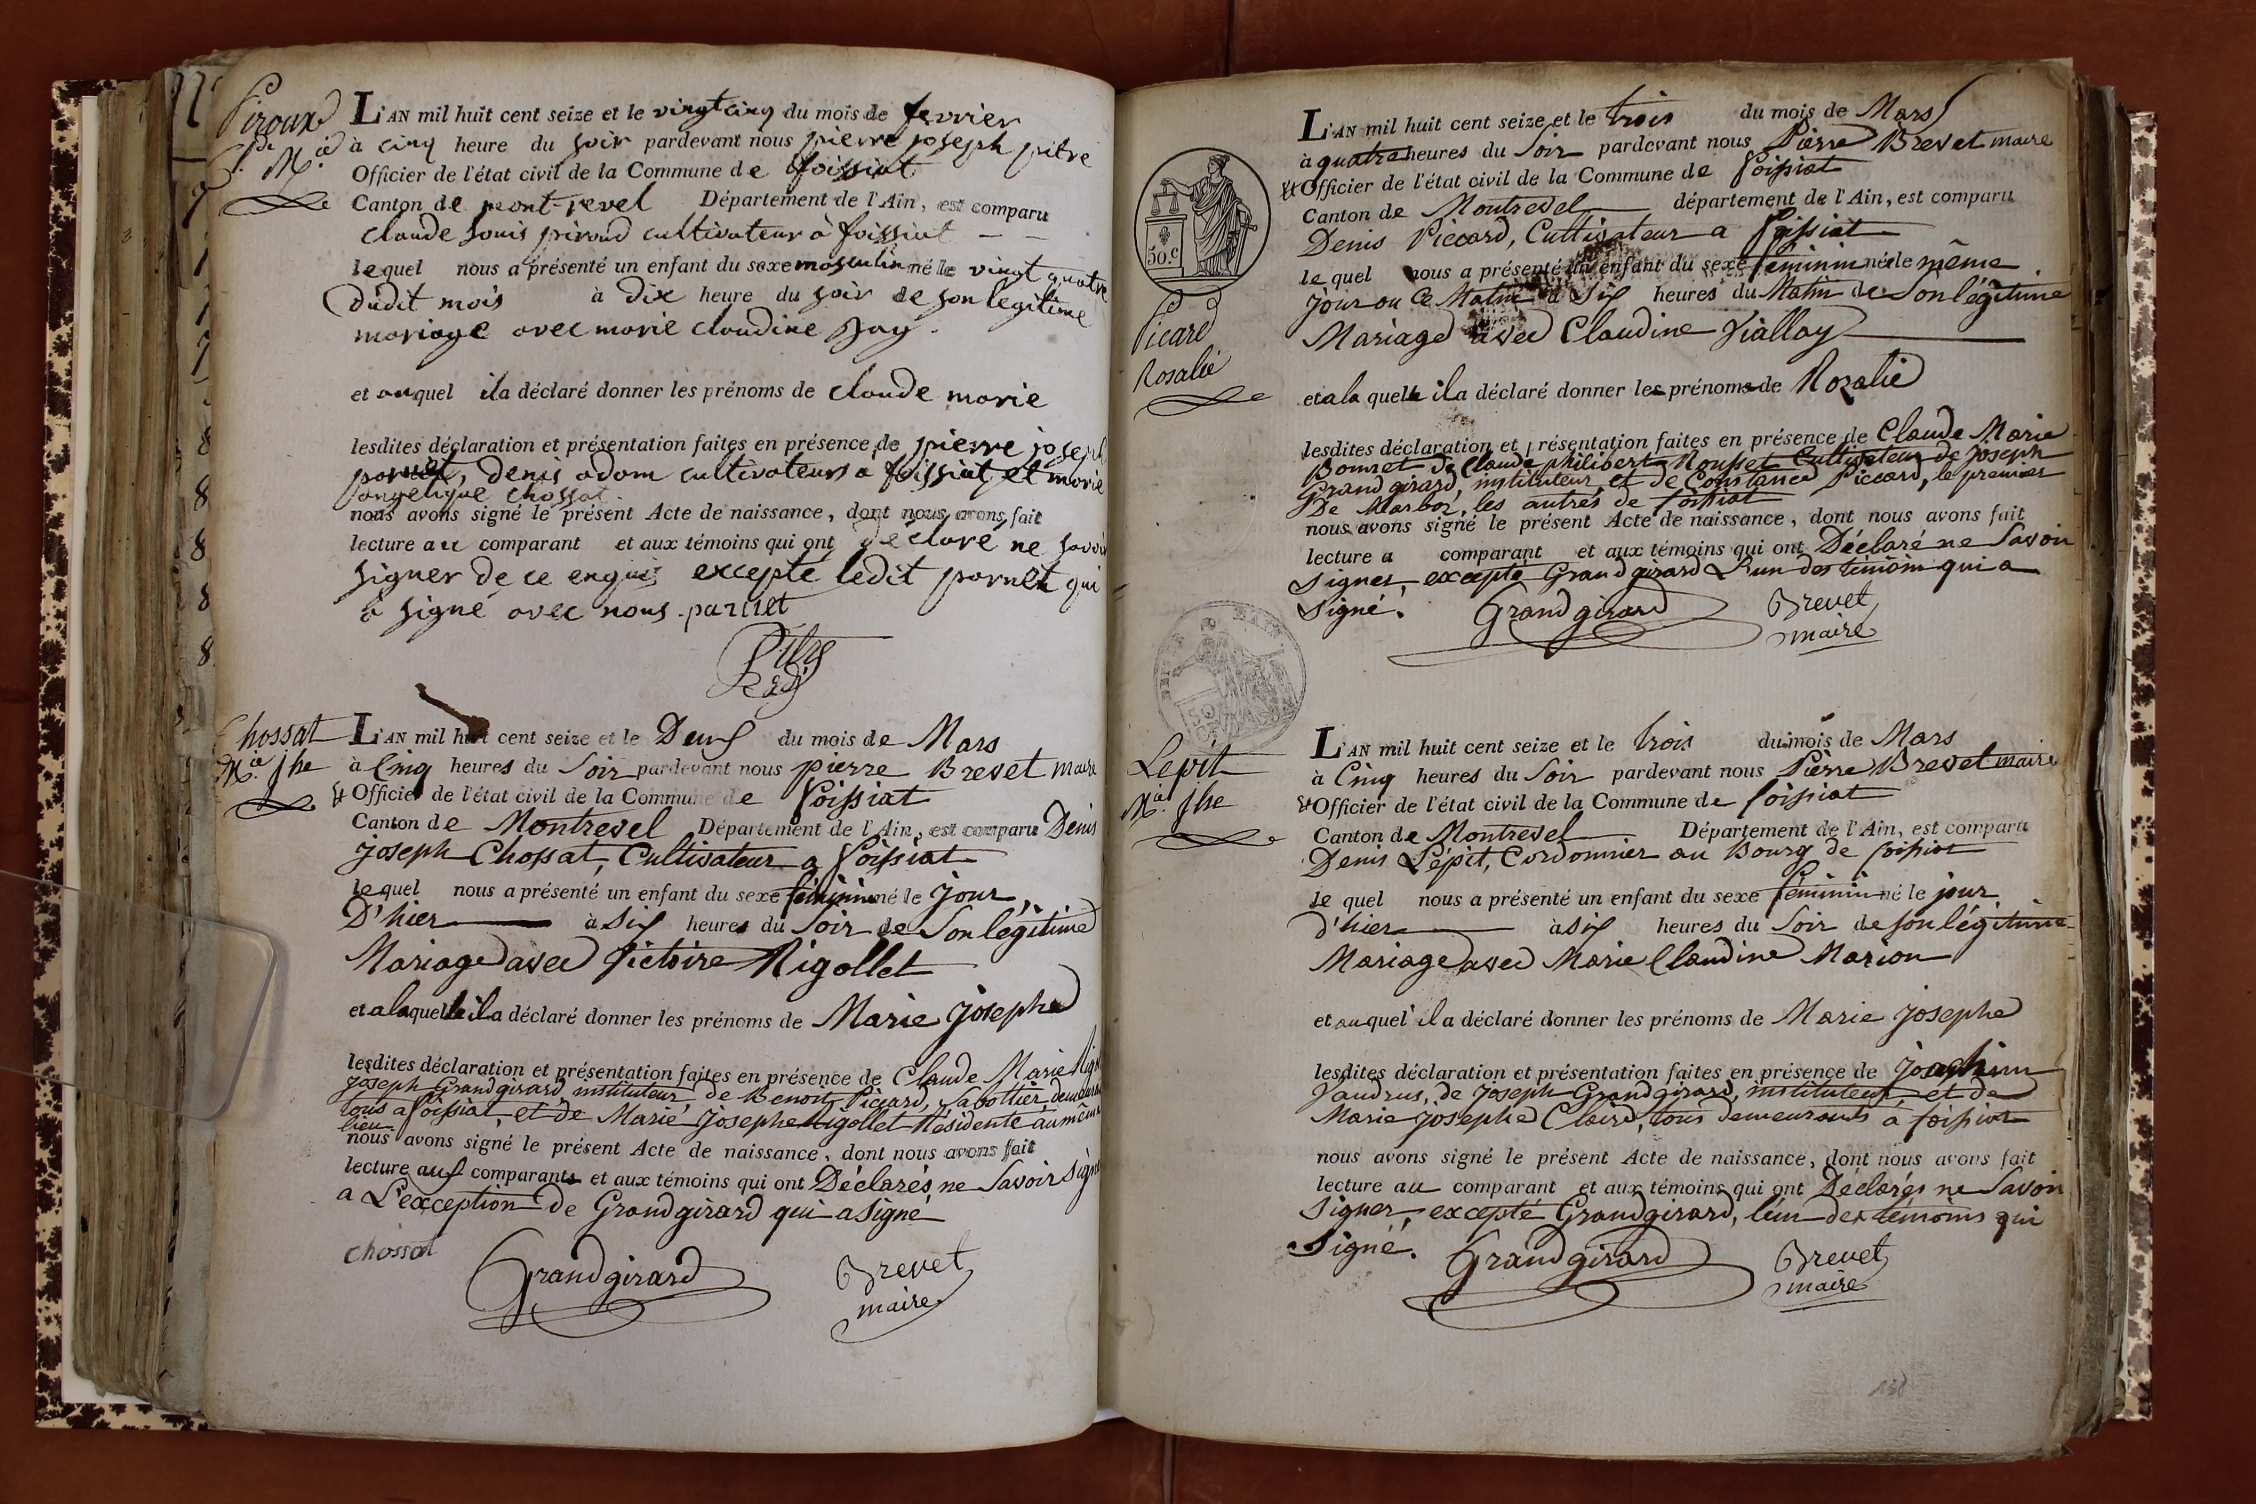 Piroux
Cde Mie
L'AN mil huit cent seize et le vingt cinq du mois de fevrier
à cinq heure du soir pardevant nous pierre joseph pitre
Officier de l'état civil de la Commune de foissiat
Canton de mont-revel Département de l'Ain, est comparu
claude louis piroud cultivateur à foissiat
lequel nous a présenté un enfant du sexe masculin né le vingt quatre
dudit mois à dix heure du soir de son legitime
mariage avec marie claudine
et auquel il a déclaré donner les prénoms de claude marie
lesdites déclaration et présentation faites en présence de pierre joseph
parnet, denis adam cultivateurs a foissiat et marie
angelique chossat
nous avons signé le présent Acte de naissance, dont nous avons fait
lecture au comparant et aux témoins qui ont déclaré ne savoir
signer de ce enquis excepté ledit parnet qui
a signé avec nous. parnet
Pitre
Chossat
Mie Jhe
L'AN mil huit cent seize et le Deux du mois de Mars
à Cinq heures du Soir pardevant nous pierre Brevet maire
& Officier de l'état civil de la Commune de foissiat
Canton de Montrevel Département de l'Ain, est comparu Denis
joseph Chossat, Cultivateur a foissiat
lequel nous a présenté un enfant du sexe féminin né le jour
D'hier à Six heures du Soir de Son légitime
Mariage avec Victoire Rigollet
et a laquelle il a déclaré donner les prénoms de Marie josephe
lesdites déclaration et présentation faites en présence de Claude Marie
joseph Grandgirard, instituteur, de Benoit Piccard, Sabottier, demeurant
tous a foissiat, et de Marie josephe Rigollet Résidente au même
lieu
nous avons signé le présent Acte de naissance, dont nous avons fait
lecture aux comparants et aux témoins qui ont Déclarés ne Savoir Signer
a L'exception de Grandgirard qui a Signé
chossat Grandgirard Brevet
maire
50. C
Picard
Rosalie
L'AN mil huit cent seize et le trois du mois de Mars
à quatre heures du Soir pardevant nous Pierre Brevet maire
& Officier de l'état civil de la Commune de foissiat
Canton de Montrevel département de l'Ain, est comparu
Denis Piccard, Cultivateur a foissiat
lequel nous a présenté un enfant du sexe féminin né le même
jour ou Ce Matin à Six heures du Matin de Son légitime
Mariage avec Claudine Viallay
et a la quelle il a déclaré donner les prénoms de Rozalie
lesdites déclaration et présentation faites en présence de Claude Marie
Bonnet de Claude philibert Rousset Cultivateur de joseph
Grandgirard, instituteur et de Constance Piccard, le premier
De Marboz, les autres de foissiat
nous avons signé le présent Acte de naissance, dont nous avons fait
lecture a comparant et aux témoins qui ont Déclaré ne Savoir
Signer, excepté Grandgirard L'un des témoins qui a
Signé. Grandgirard Brevet
maire
Lepit
Mie Jhe
L'AN mil huit cent seize et le trois du mois de Mars
à Cinq heures du Soir pardevant nous Pierre Brevet maire
& Officier de l'état civil de la Commune de foissiat
Canton de Montrevel Département de l'Ain, est comparu
Denis Lépit, Cordonnier au Bourg de foissiat
le quel nous a présenté un enfant du sexe féminin né le jour
d'hier à Six heures du Soir de son légitime
Mariage avec Marie Claudine Marion
et auquel il a déclaré donner les prénoms de Marie josephe
lesdites déclaration et présentation faites en présence de joachim
Vaudrus, de joseph Grandgirard, instituteur, et de
Marie josephe Claire, tous demeurants à foissiat
nous avons signé le présent Acte de naissance, dont nous avons fait
lecture au comparant et aux témoins qui ont Déclarés ne Savoir
Signer, excepté Grandgirard, l'un des témoins qui
a Signé. Grandgirard Brevet
maire